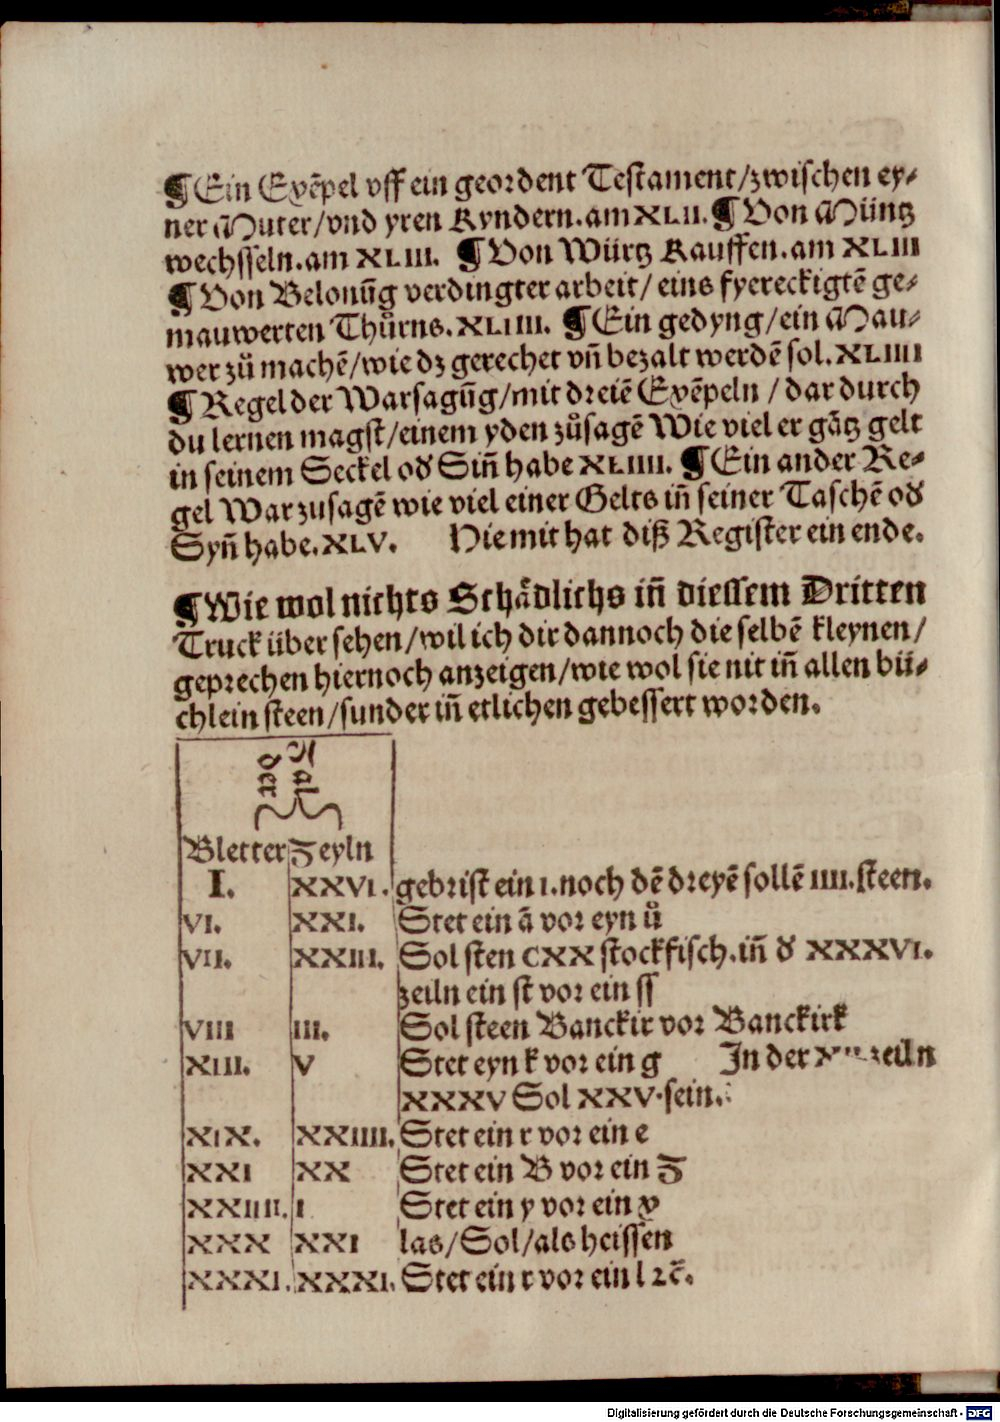 ¶ Ein Exēpel vff ein geordent Testament/zwischen ey⸗
ner Muter/vnd yren Kyndern.am XLII. ¶ Von Müntz
wechsseln.am XLIII. ¶ Von Würtz Kauffen.am XLIII
¶ Von Belonūg verdingter arbeit/ eins fyereckigtē ge⸗
mauwerten Thůrns.XLIIII. ¶ Ein gedyng/ein Mau⸗
wer zů machē/wie dz gerechet vn̄ bezalt werdē sol.XLIIII
¶ Regel der Warsagūg/mit dreiē Exēpeln / dar durch
du lernen magst/einem yden zůsagē Wie viel er gātz gelt
in seinem Seckel oð Sin̄ habe XLIIII. ¶ Ein ander Re⸗
gel War zusagē wie viel einer Gelts in̄ seiner Taschē oð
Syn̄ habe.XLV. Hie mit hat diß Register ein ende.
¶ Wie wol nichts Schådlichs in̄ diessem Dritten
Truck über sehen/wil ich dir dannoch die selbē kleynen/
geprechen hiernoch anzeigen/wie wol sie nit in̄ allen bü⸗
chlein steen/sunder in̄ etlichen gebessert worden.
Zal
der
Bletter Zeyln
I. XXVI. gebrist ein I.noch dē dreyē sollē IIII.steen.
VI. XXI. Stet ein ā vor eyn ů
VII. XXIII. Sol sten CXX stockfisch.in̄ ð XXXVI.
zeiln ein st vor ein ss
VIII III. Sol steen Banckir vor Banckirk
XIII. V Stet eyn k vor ein g In der zeiln
XXXV Sol XXV.sein.
XIX. XXIIII. Stet ein r vor ein e
XXI XX Stet ein B vor ein Z
XXIIII. I Stet ein y vor ein x
XXX XXI las/Sol/als heissen
XXXI. XXXI. Stet ein r vor ein l ꝛc̄.
Digitalisierung gefördert durch die Deutsche Forschungsgemeinschaft - DFG